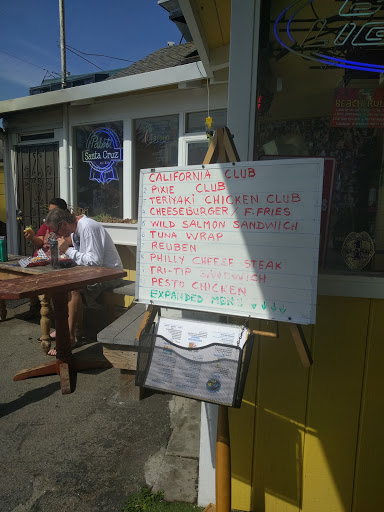 Pabst
Santa Cruz
CALIFORNIA CLUB
PIXIE CLUB
TERIYAKI CHICKEN CLUB
CHEESEBURGER/F-FRIES
WILD SALMON SANDWICH
TUNA WRAP
REUBEN
PHILLY CHEESE STEAK
TRI-TIP SANDWICH
PESTO CHICKEN
EXPANDED MENU